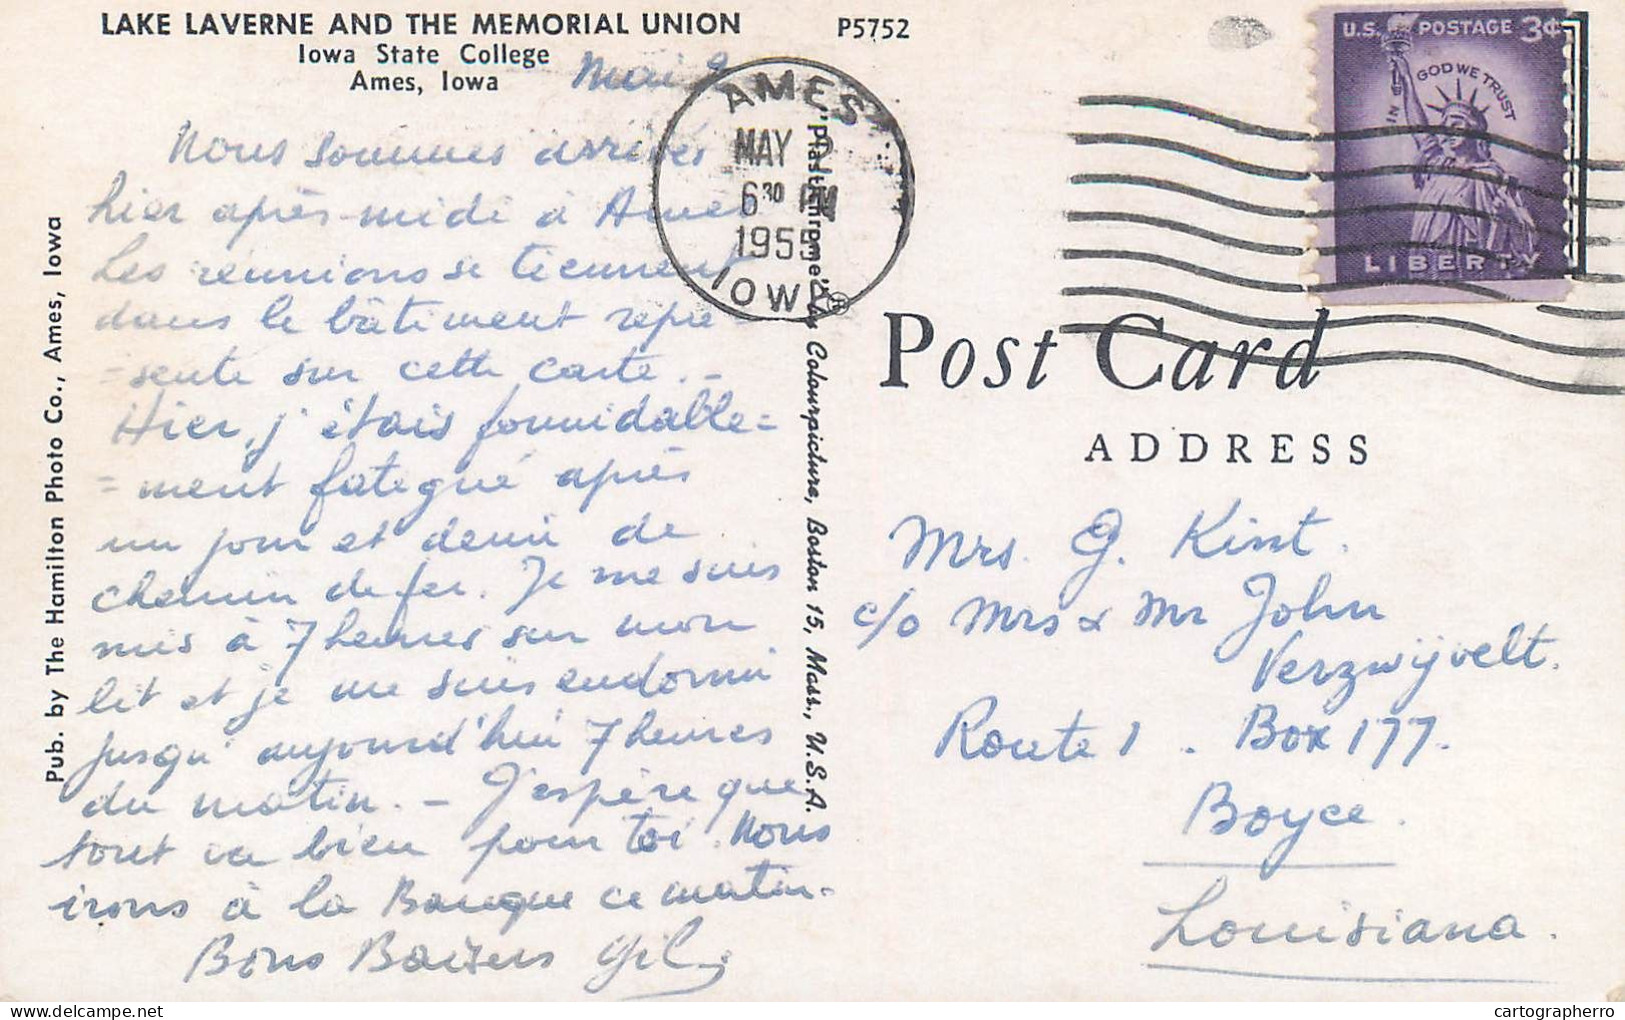 LAKE LAVERNE AND THE MEMORIAL UNION
Iowa State College
Ames, Iowa
P5752
Mai 9
Nous sommes arrivés
hier après-midi à Ames
Les réunions se tiennent
dans le bâtiment repré-
=sente sur cette carte. -
Hier, j'étais formidable=
=ment fatigué après
un jour et demi de
chemin de fer. Je me suis
mis à 7 heures sur mon
lit et je me suis endormi
jusqu'aujourd'hui 7 heures
du matin. - J'espère que
tout va bien pour toi. Nous
irons à la Banque ce matin.
Bons Baisers Gil
Pub. by The Hamilton Photo Co., Ames, Iowa
"Plastichrome"® by Colourpicture, Boston 15, Mass., U.S.A.
AMES
MAY 9
6 30 PM
1955
IOWA
U.S. POSTAGE 3¢
IN GOD WE TRUST
LIBERTY
Post Card
ADDRESS
Mrs. G. Kint.
c/o Mrs & Mr John
Verzwijvelt.
Route 1. Box 177.
Boyce.
Louisiana.
cartographerro